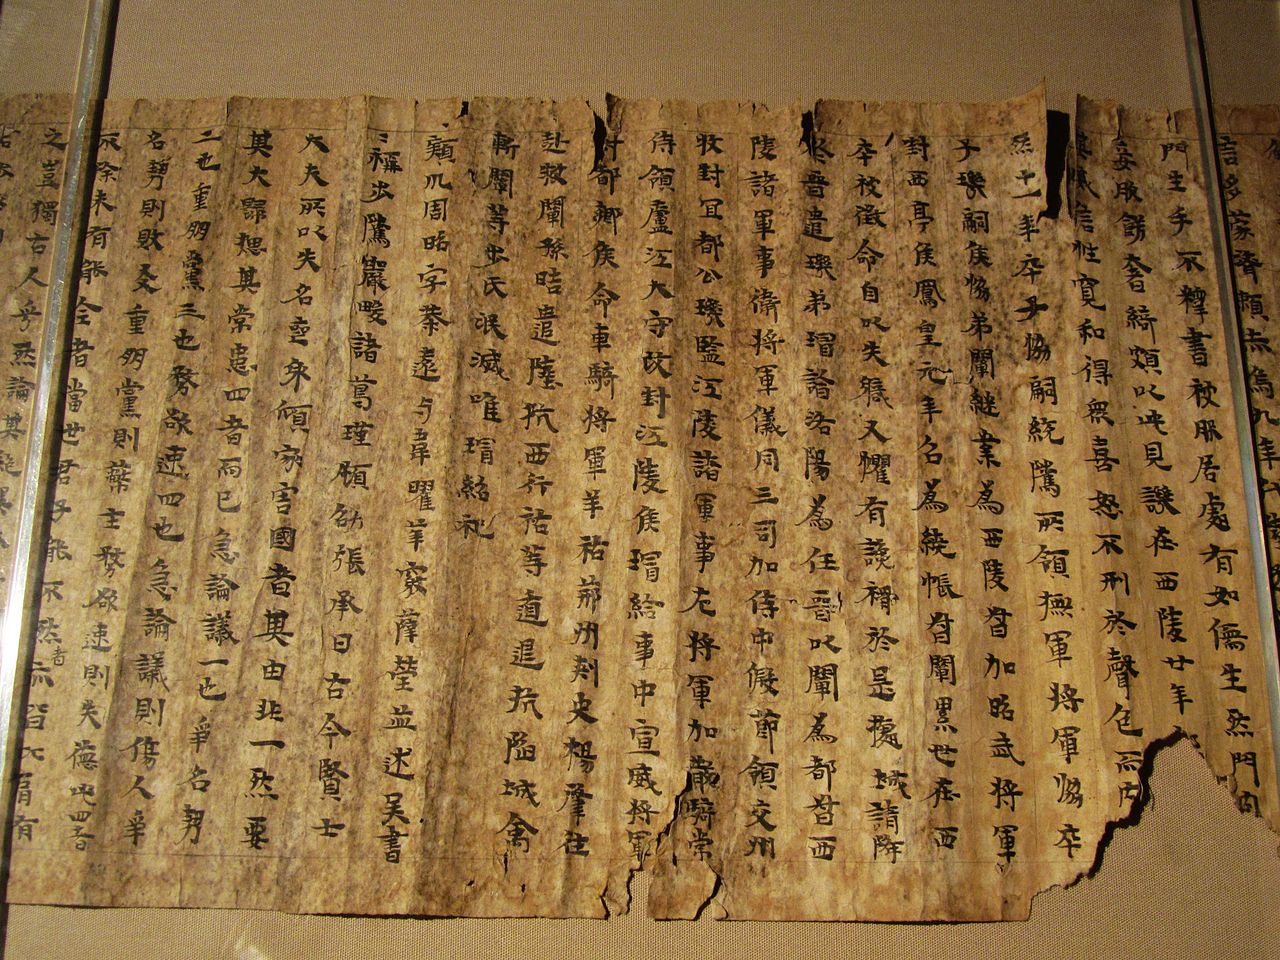 言多蒙濟賴赤烏九年代陸
門生手不釋書被服居處有如儒生然門內
妾服飾奢綺頗以此見譏在西陵廿年
其威信性寬和得衆喜怒不形於聲色而內
十一年卒子協嗣統騭所領撫軍將軍協卒
子璣嗣侯協弟闡繼業為西陵督加昭武將軍
封西亭侯鳳皇元年召為繞帳督闡累世在西
卒被徵命自以失職又懼有讒禍於是據城請降
晉遣璣弟璿詣洛陽為任晉以闡為都督西
陵諸軍事衛將軍儀同三司加侍中假節領交州
牧封宜都公璣監江陵諸軍事左將軍加散騎常
侍領廬江太守改封江陵侯璿給事中宣威將軍
封都鄉侯命車騎將軍羊祜荊州刺史楊肇往
赴救闡孫晧遣陸抗西行祜等遁退抗陷城禽
斬闡等步氏泯滅唯璿紹祀
潁川周昭字恭遠与韋曜華覈薛瑩並述吳書
三稱步騭嚴畯諸葛瑾顧劭張承曰古今賢士
大夫所以失名喪身傾家害國者其由非一然要
其大歸揔其常患四者而已急論議一也爭名勢
二也重朋黨三也務欲速四也急論議則傷人爭
名勢則敗友重朋黨則蔽主務欲速則失德此四者
不除未有能全者當世君子能不然者亦皆比肩有
之豈獨古人乎然論其絕異